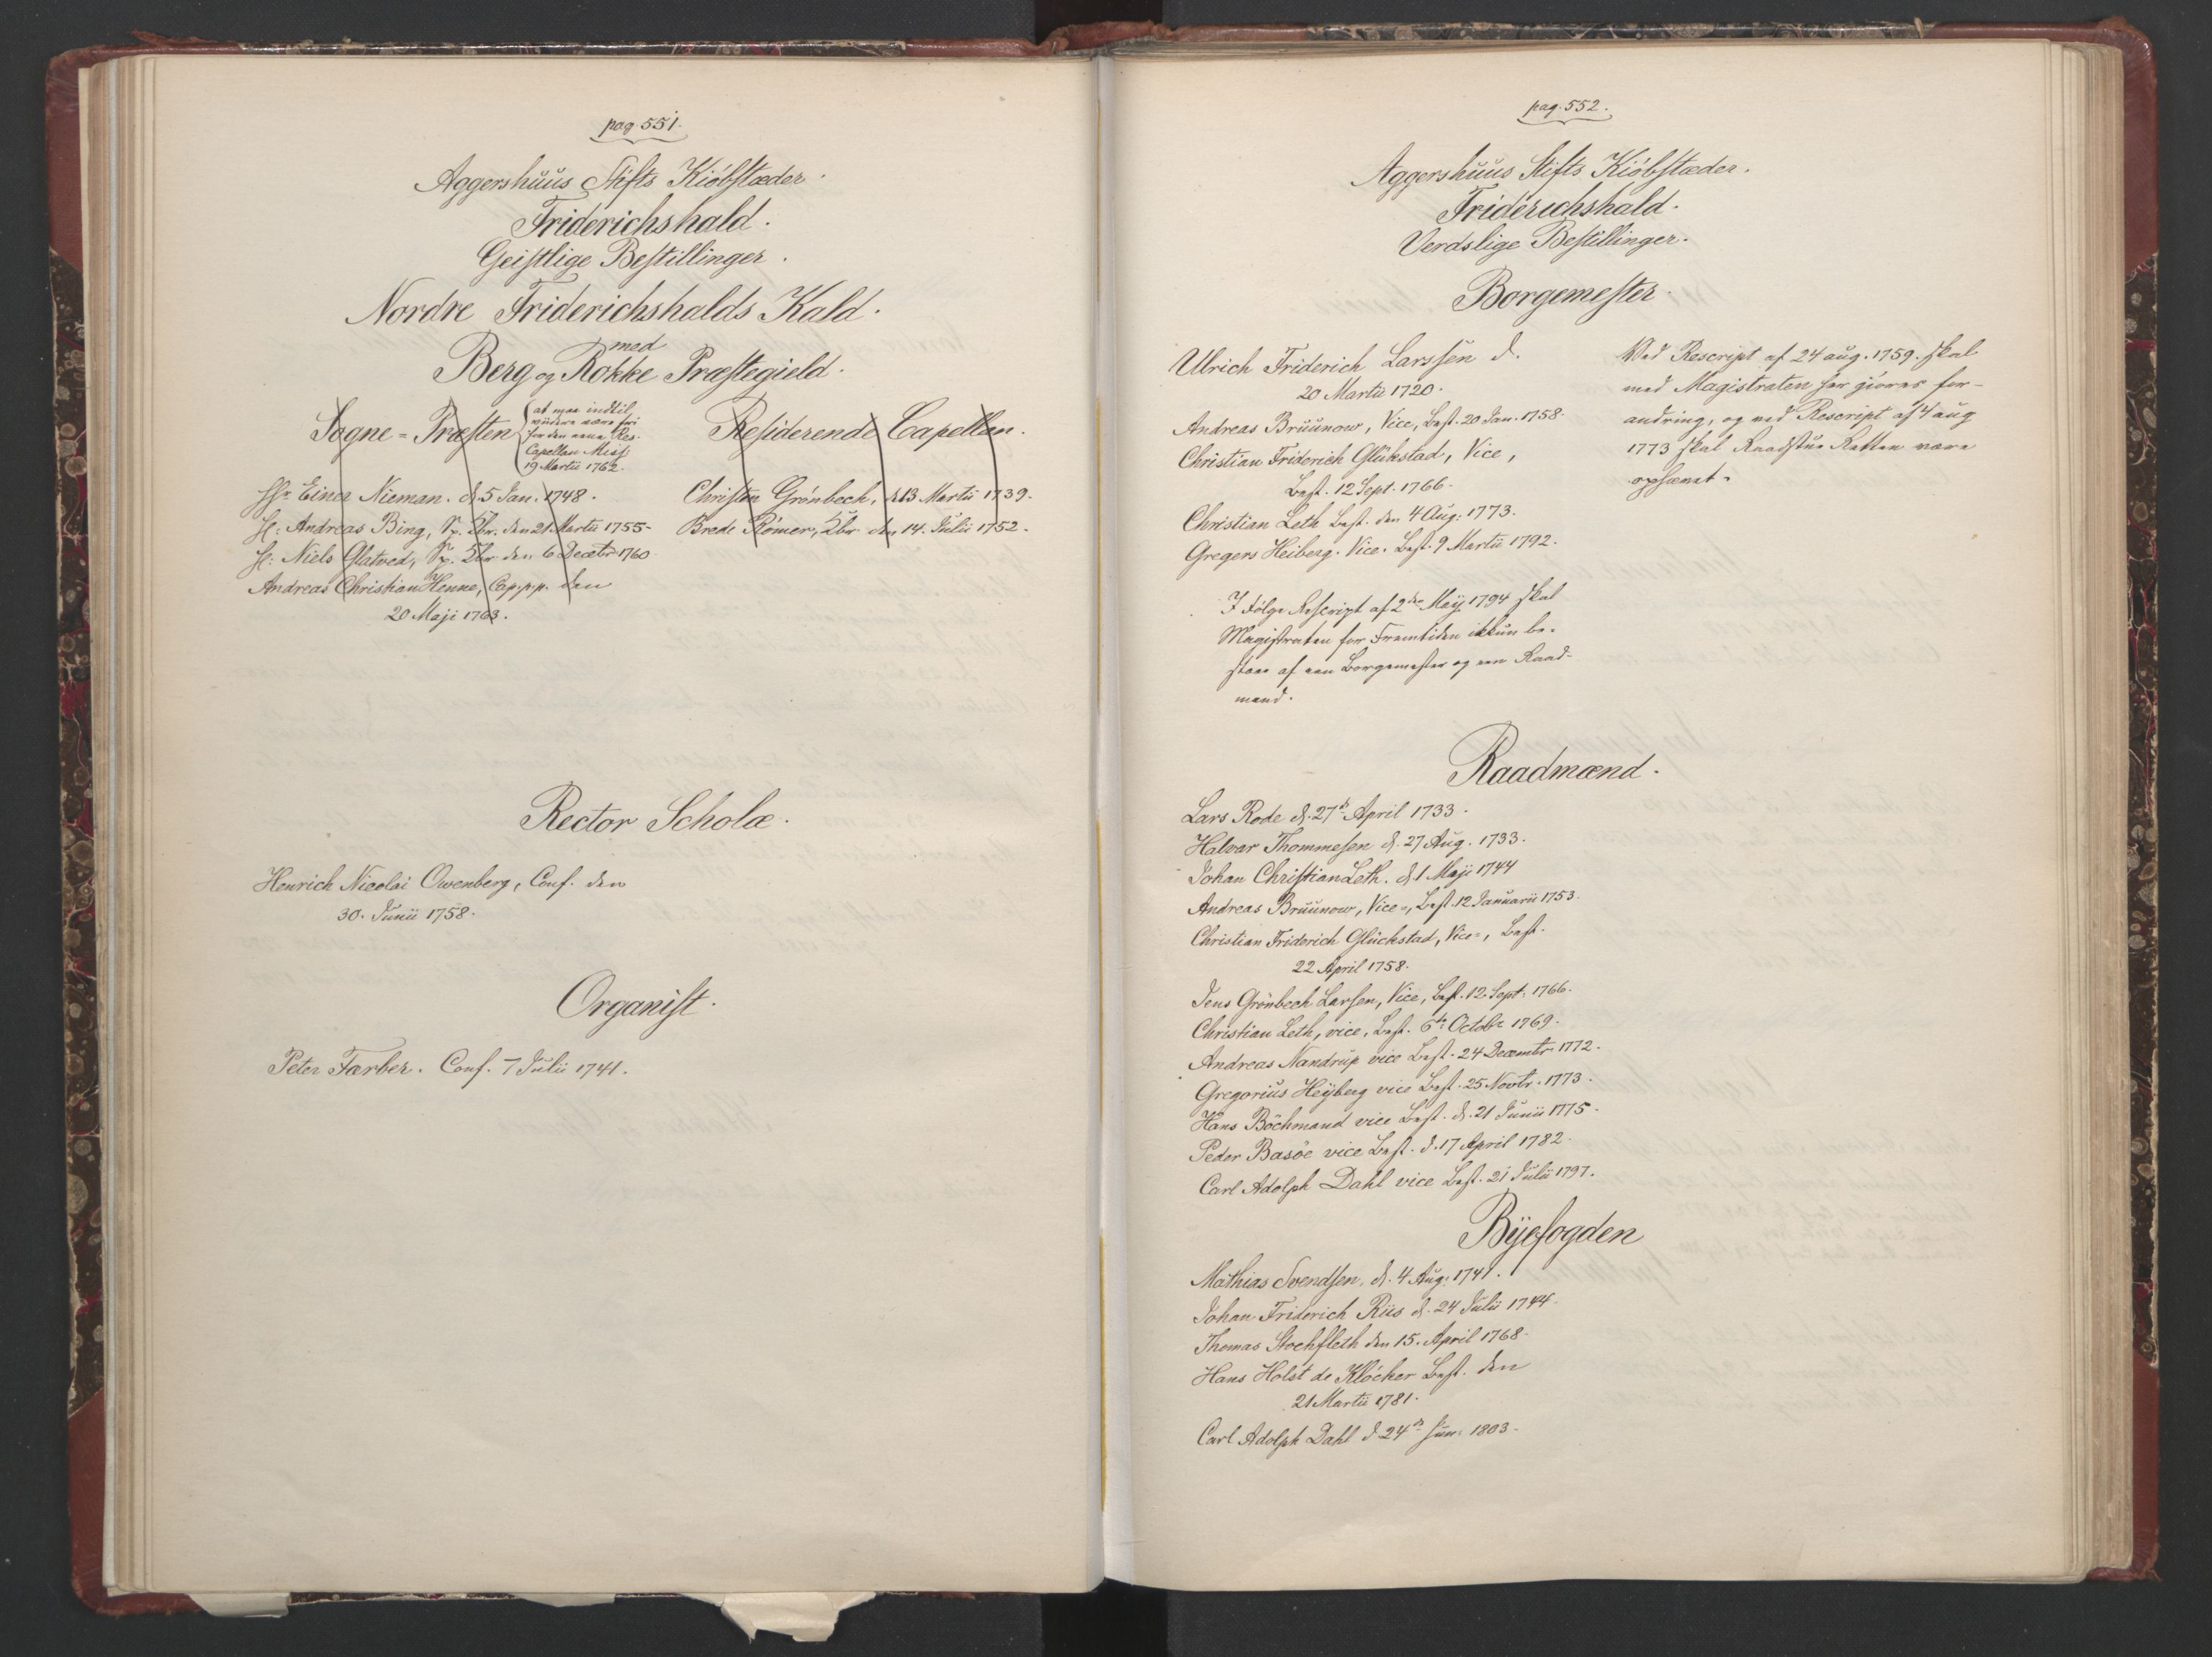 pag. 551.
Aggershuus Stifts Kiöbstæder.
Friderichshald.
Geistlige Bestillinger.
Nordre Friderichshalds Kald.
med
Berg og Rokke Præstegield.
Sogne-Præsten
at maa indtil
videre være fri
for den eene Res.
Capellan Miss:
19 Martii 1762.
Hr. Einer Nieman. d. 5 Jan. 1748.
H: Andreas Bing, Sp. Xbr. den 21 Martii 1755-
H: Niels Glatved, Sp. Xbr. den 6 Decbr 1760
Andreas Christian Henne, Cap. p.p. den
20 Maji 1763.
Residerende Capellan.
Christen Grönbech, d. 13 Martii 1739.
Brede Römer, Xbr den 14. Julii 1752.
Rector Scholæ.
Henrich Nicolai Owenberg, Conf. den
30. Junii 1758.
Organist.
Peter Farber. Conf. 7 Julii 1741.
pag. 552.
Aggershuus Stifts Kiöbstæder.
Friderichshald.
Verdslige Bestillinger.
Borgemester.
Ulrich Friderich Larssen d.
20 Martii 1720.
Andreas Bruunow, Vice, Best. 20 Jan. 1758.
Christian Friderich Glükstad, Vice,
Best. 12 Sept. 1766.
Christian Leth Best. den 4 Aug: 1773.
Gregers Heiberg. Vice. Best. 9 Martii 1792.
I Fölge Rescript af 2den Mey 1794 skal
Magistraten for Fremtiden ikkun be-
staae af een Borgemester og een Raad-
mand.
Ved Rescript af 24 aug. 1759. skal
med Magistraten her giöres for-
andring, og ved Rescript af 4 aug
1773 skal Raadstue Retten være
ophævet.
Raadmænd.
Lars Rode d. 27de April 1733.
Halvar Thommesen d. 27 Aug. 1733.
Johan Christian Leth. d. 1 Maji 1744
Andreas Bruunow, Vice-, Best. 12 Januarii 1753.
Christian Friderich Glückstad, Vice-, Best.
22 April 1758.
Jens Grönbech Larsen, Vice, Best. 12. Sept: 1766.
Christian Leth, vice, Best. 6te Octobr 1769.
Andreas Nandrup vice Best. 24 Decembr 1772.
Gregorius Heÿberg vice Best. 25 Novbr. 1773.
Hans Böchmand vice Best. d. 21 Junii 1775.
Peder Basöe vice Best. d. 17 April 1782.
Carl Adolph Dahl vice Best. 21 Julii 1797.
Bÿefogden
Mathias Svendsen, d. 4 Aug: 1741.
Johan Friderich Riis d. 24 Julii 1744.
Thomas Stochfleth den 15. April 1768.
Hans Holst de Klöcker Best. den
21 Martii 1781.
Carl Adolph Dahl d 24de Jun: 1803.